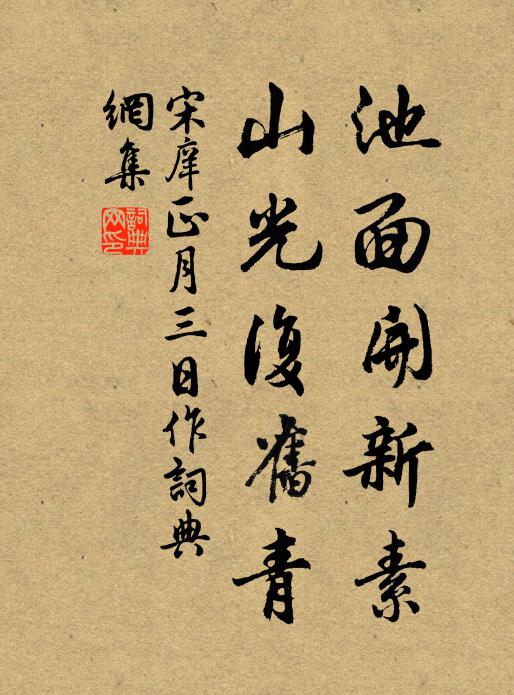 池面開新素
山光復舊青
宋庠正月三日作詞典
網集
詞典
网印